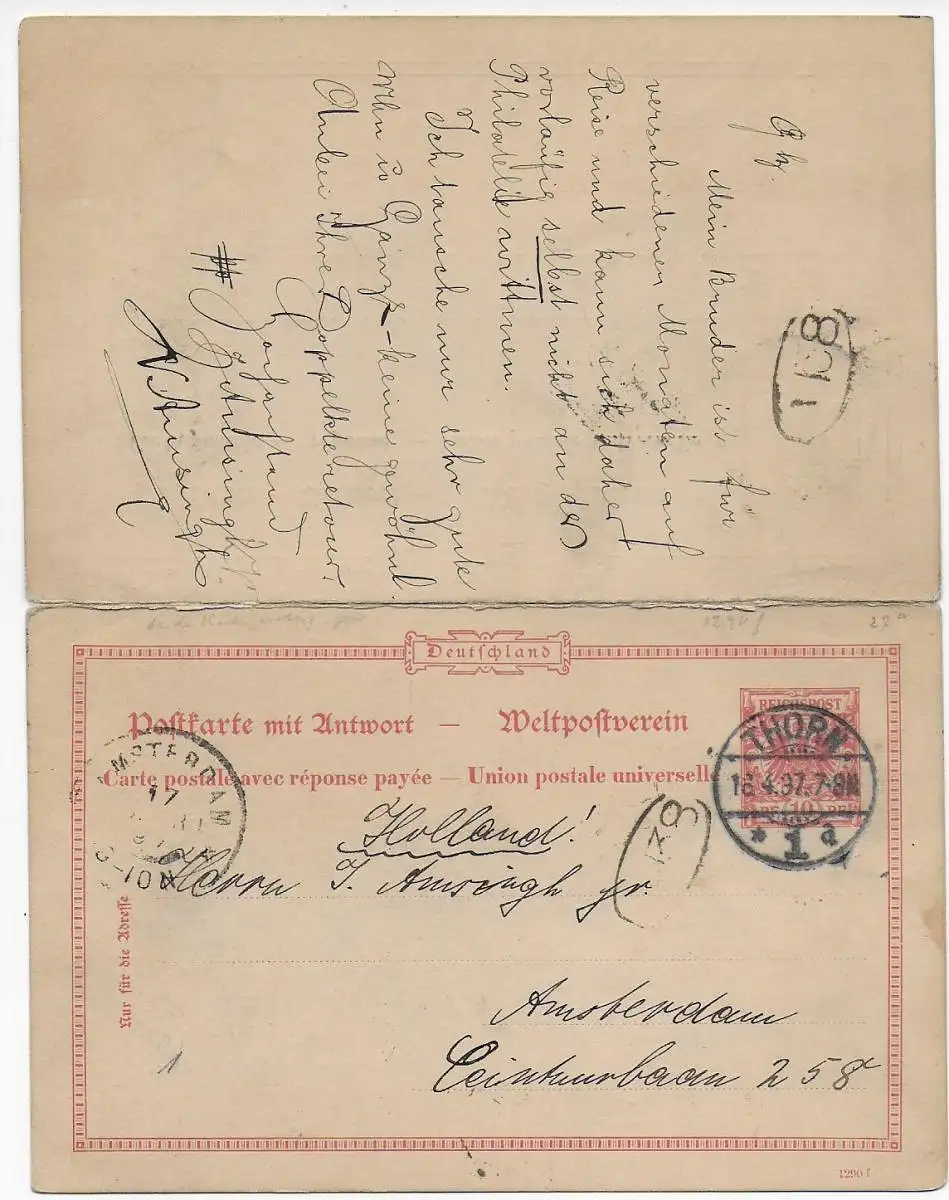 Mein Bruder ist für
verschiedenen Monaten auf
Reise und kann sich daher
vorläufig selbst nicht an der
Philatelie wittmen.
Ich tausche nur sehr gute
Wkn u Gänzs - keine gewöhnl.
Anbei Ihre Doppelkte retour.
Hochachtend
J Amsingh jr.
N Amsingh
168
Deutschland
Postkarte mit Antwort — Weltpostverein
Carte postale avec réponse payée — Union postale universelle
REICHSPOST
10
THORN
16.4.97.7-8N.
* 1 d
AMSTERDAM
17
Holland!
Herrn J. Amsingh jr.
Amsterdam
Ceintuurbaan 258
Nur für die Adresse
1
1290 f
27
1290 f